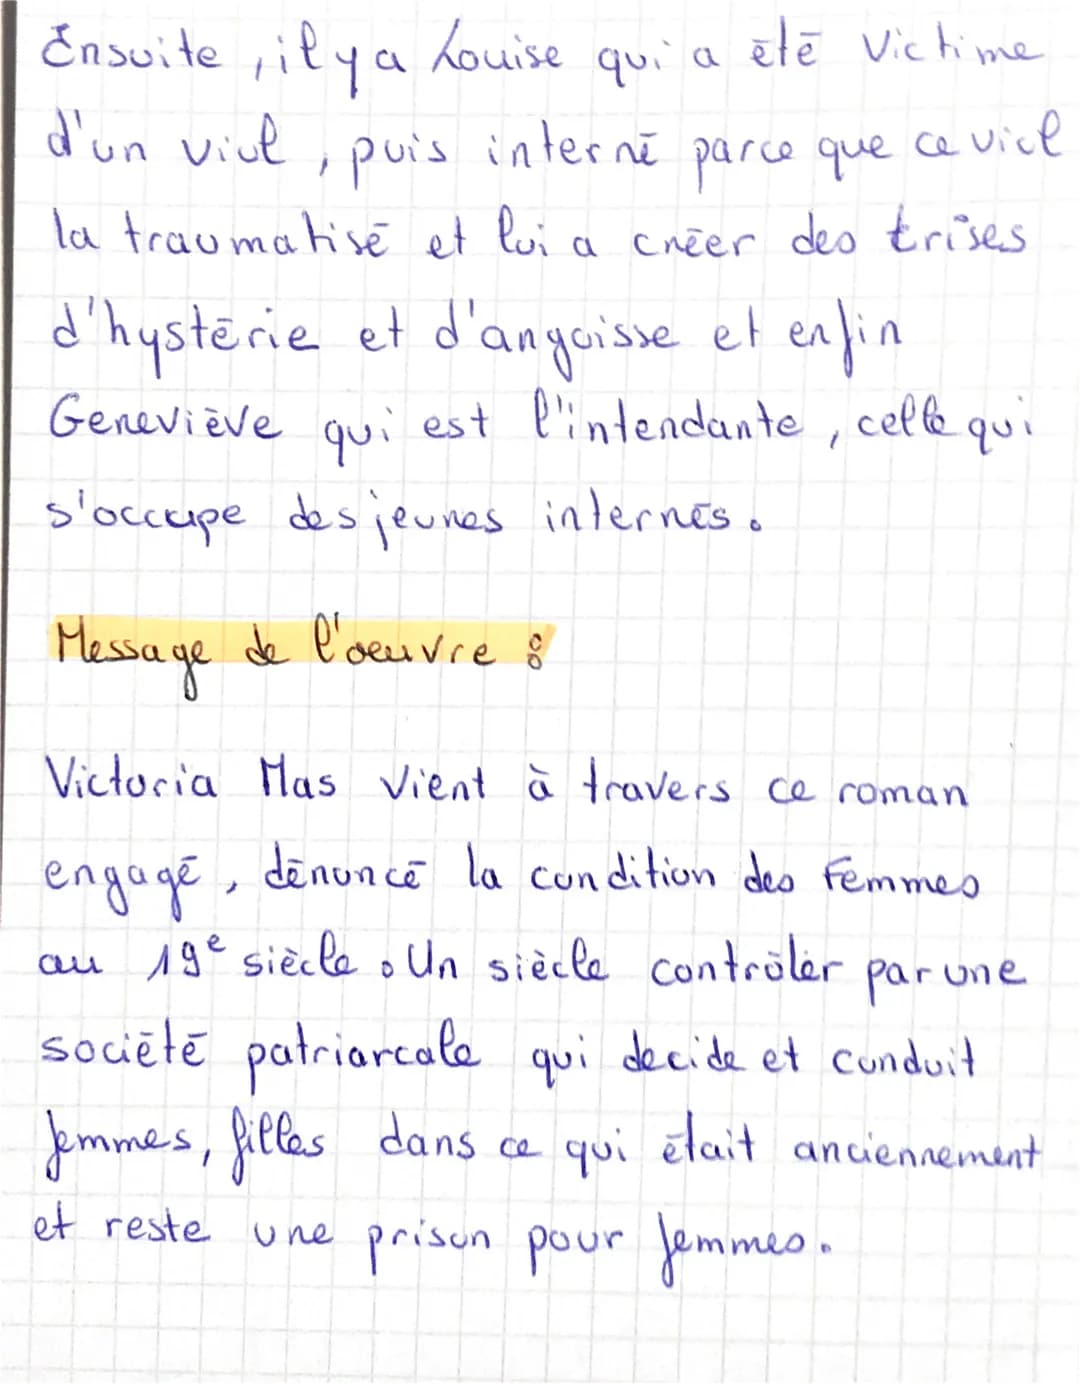 Ensuite, il y a Louise qui a été victime
d'un viol, puis interné parce que ce viol
la traumatisé et lui a créer des crises
d'hystérie et d'angoisse et enfin
Geneviève qui est l'intendante, celle qui
s'occupe des jeunes internés.
Message de l'oeuvre :
Victoria Mas vient à travers ce roman
engagé, dénoncé la condition des femmes
au 19e siècle. Un siècle contrôler par une
société patriarcale qui decide et conduit
femmes, filles dans ce qui était anciennement
et reste une prison pour femmes.